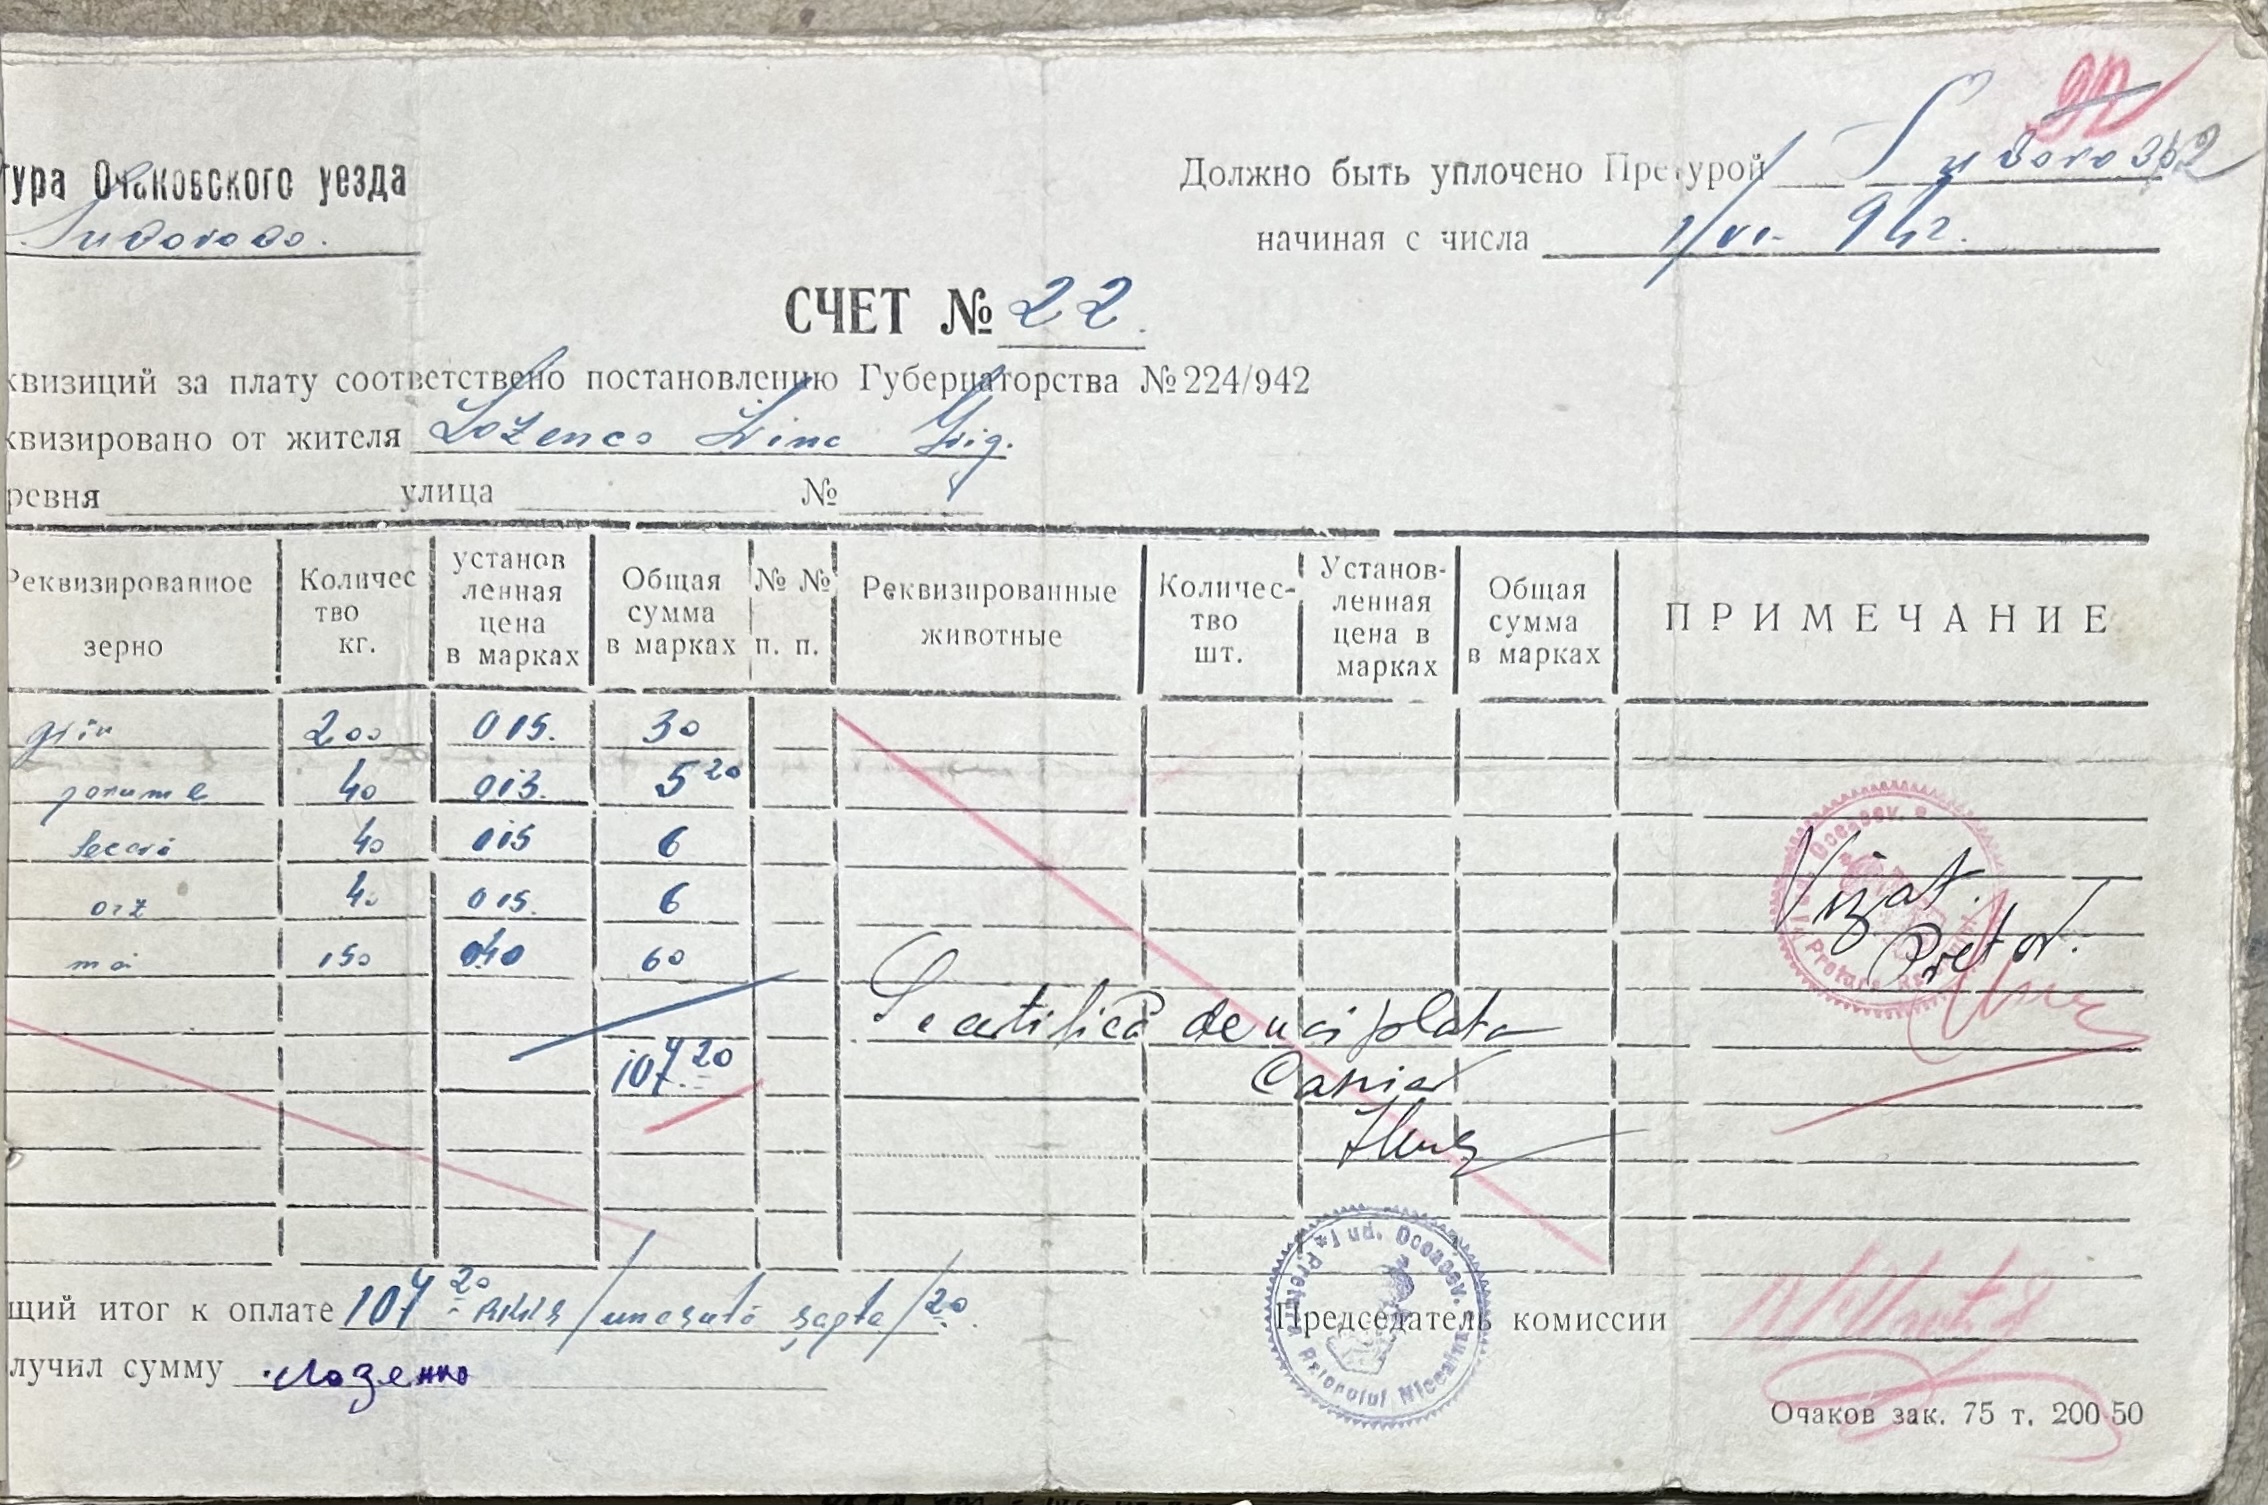 тура Очаковского уезда
Должно быть уплочено Претурой
начиная с числа 1/VI- 942.
СЧЕТ № 22.
квизиций за плату соответственно постановлению Губернаторства № 224/942
квизировано от жителя Lozenco Irina Grig.
ревня улица №
Реквизированное зерно
Количес тво кг.
установ ленная цена в марках
Общая сумма в марках
№ № п. п.
Реквизированные животные
Количес- тво шт.
Установ- ленная цена в марках
Общая сумма в марках
ПРИМЕЧАНИЕ
grîu 200 015. 30
porumb 40 013. 5 20
secară 40 015 6
orz 40 015. 6
mei 150 040 60
Vizat.
Pretor.
Se certifică de noi plata
Casier
107 20
щий итог к оплате 107 20 RKKS /una sută șapte/20.
Председатель комиссии
лучил сумму Лозенко
Jud. Oceacov. * Pretura Raionului
Очаков зак. 75 т. 200 50